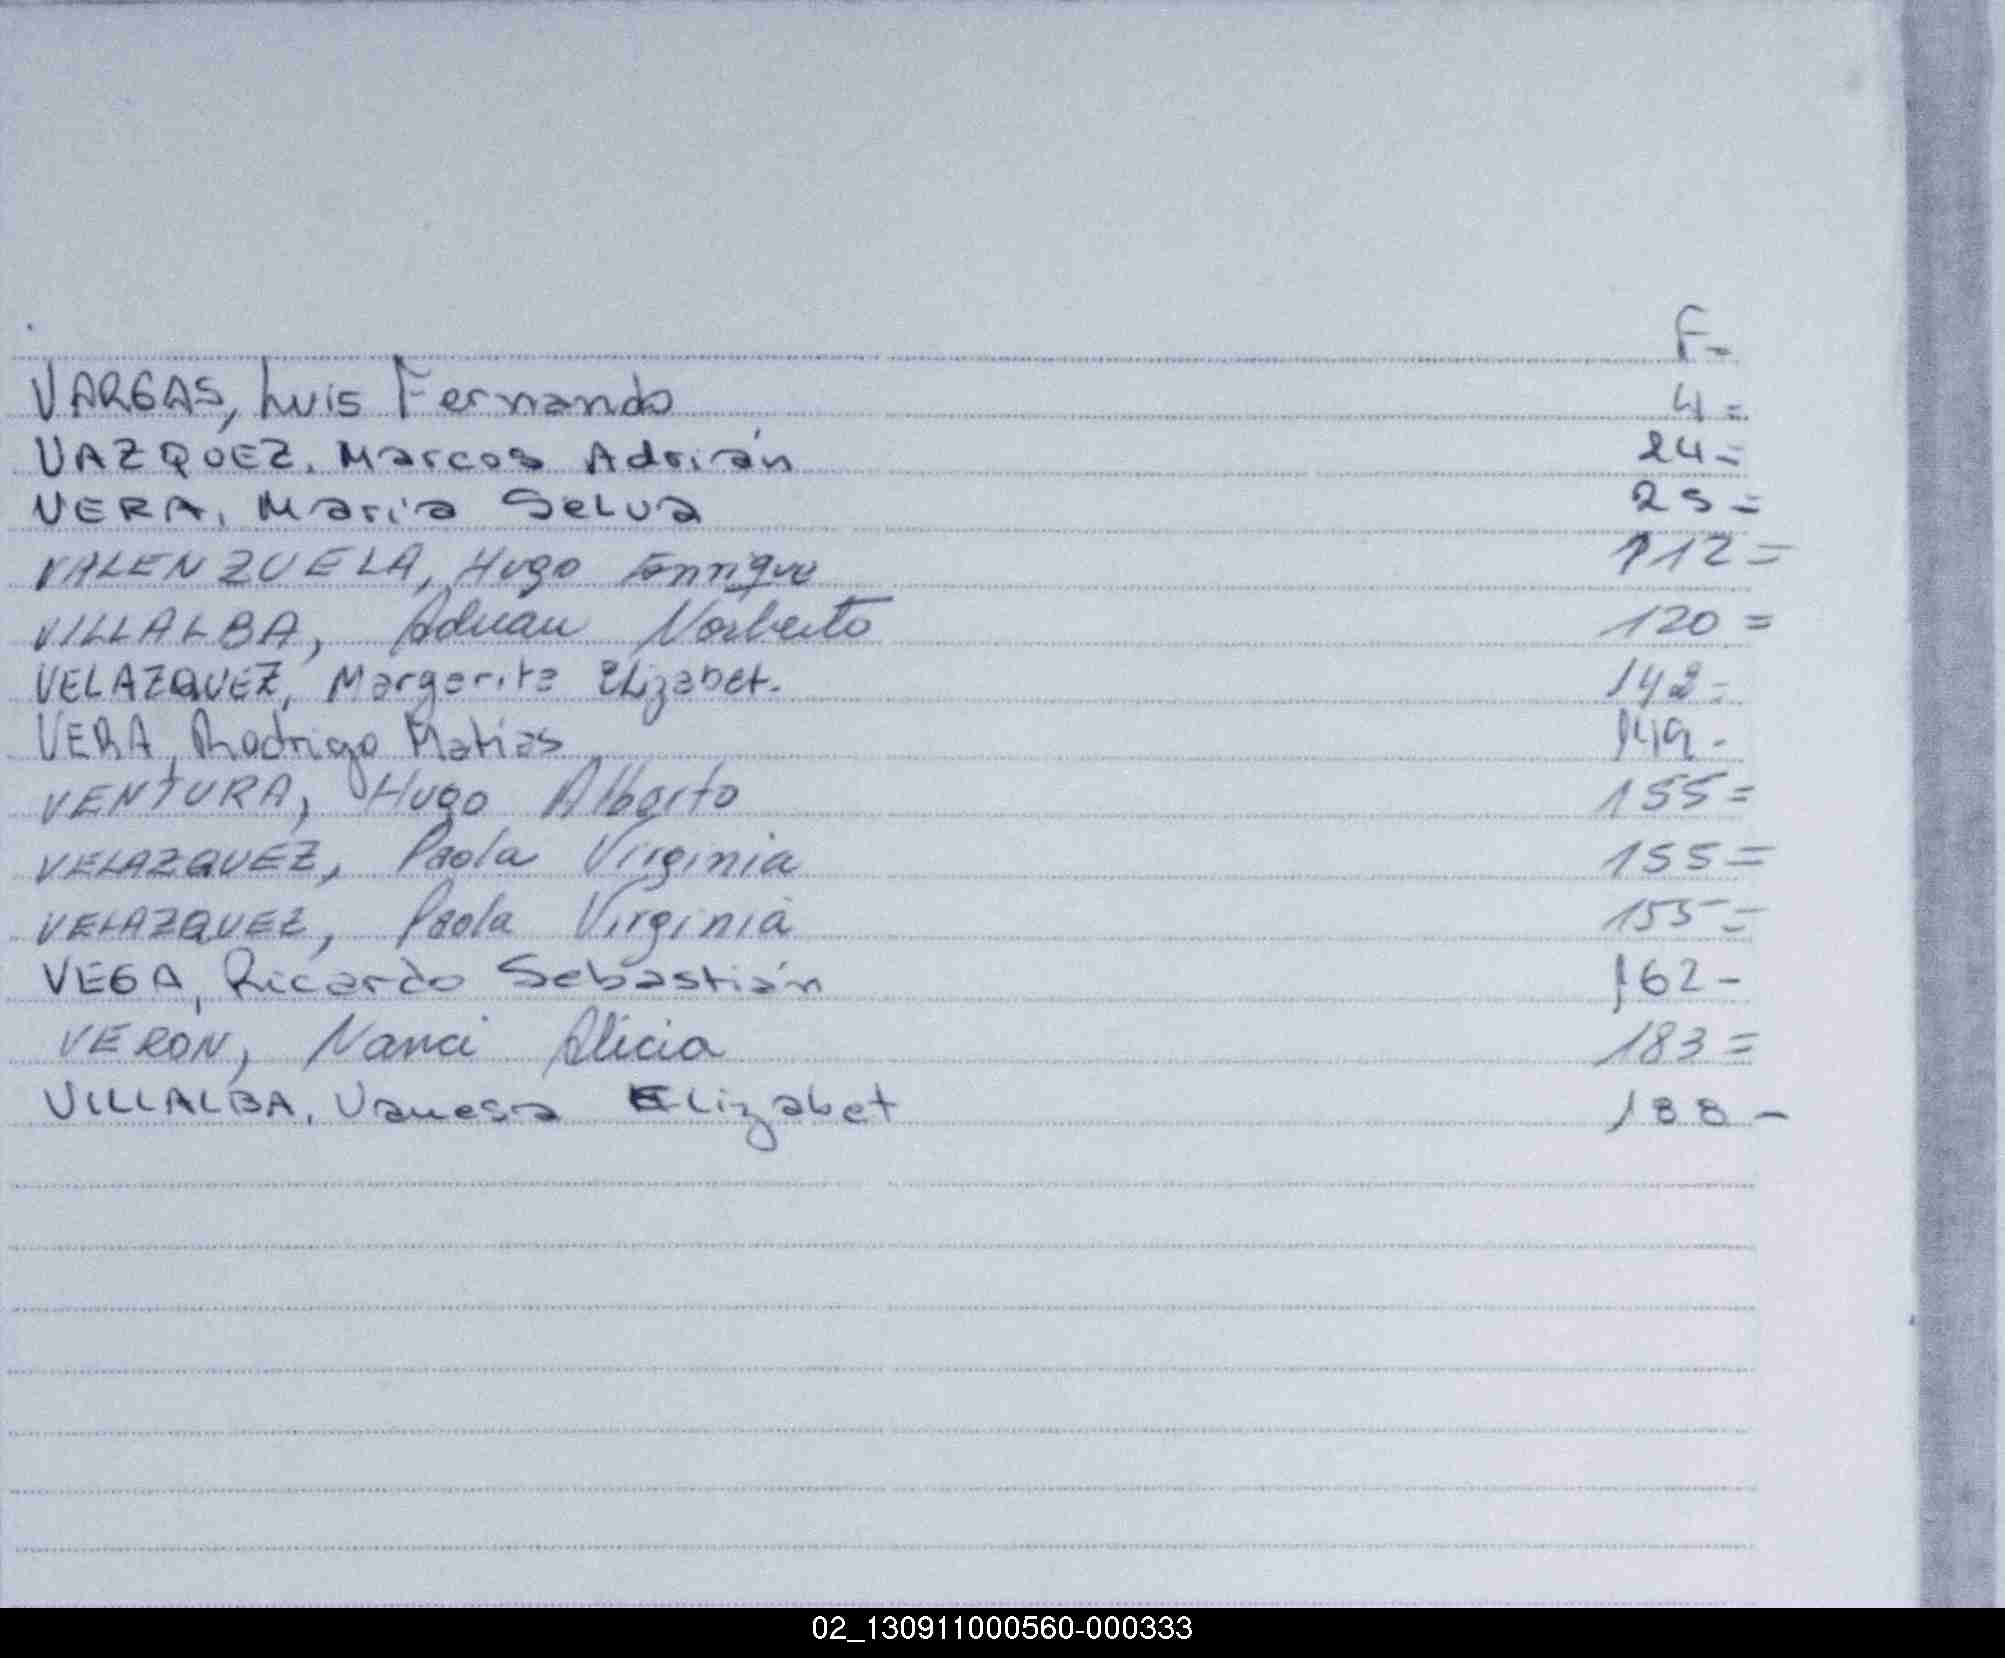 F-
VARGAS, Luis Fernando 4=
VAZQUEZ, Marcos Adrián 24=
VERA, María Selva 25=
VALENZUELA, Hugo Enrique 112=
VILLALBA, Adrian Norberto 120=
VELAZQUEZ, Margarita Elizabet. 142=
VERA, Rodrigo Matias 149-
VENTURA, Hugo Alberto 155=
VELAZQUEZ, Paola Virginia 155=
VELAZQUEZ, Paola Virginia 155=
VEGA, Ricardo Sebastián 162-
VERON, Nanci Alicia 183=
VILLALBA, Vanesa Elizabet 188-
02_130911000560-000333